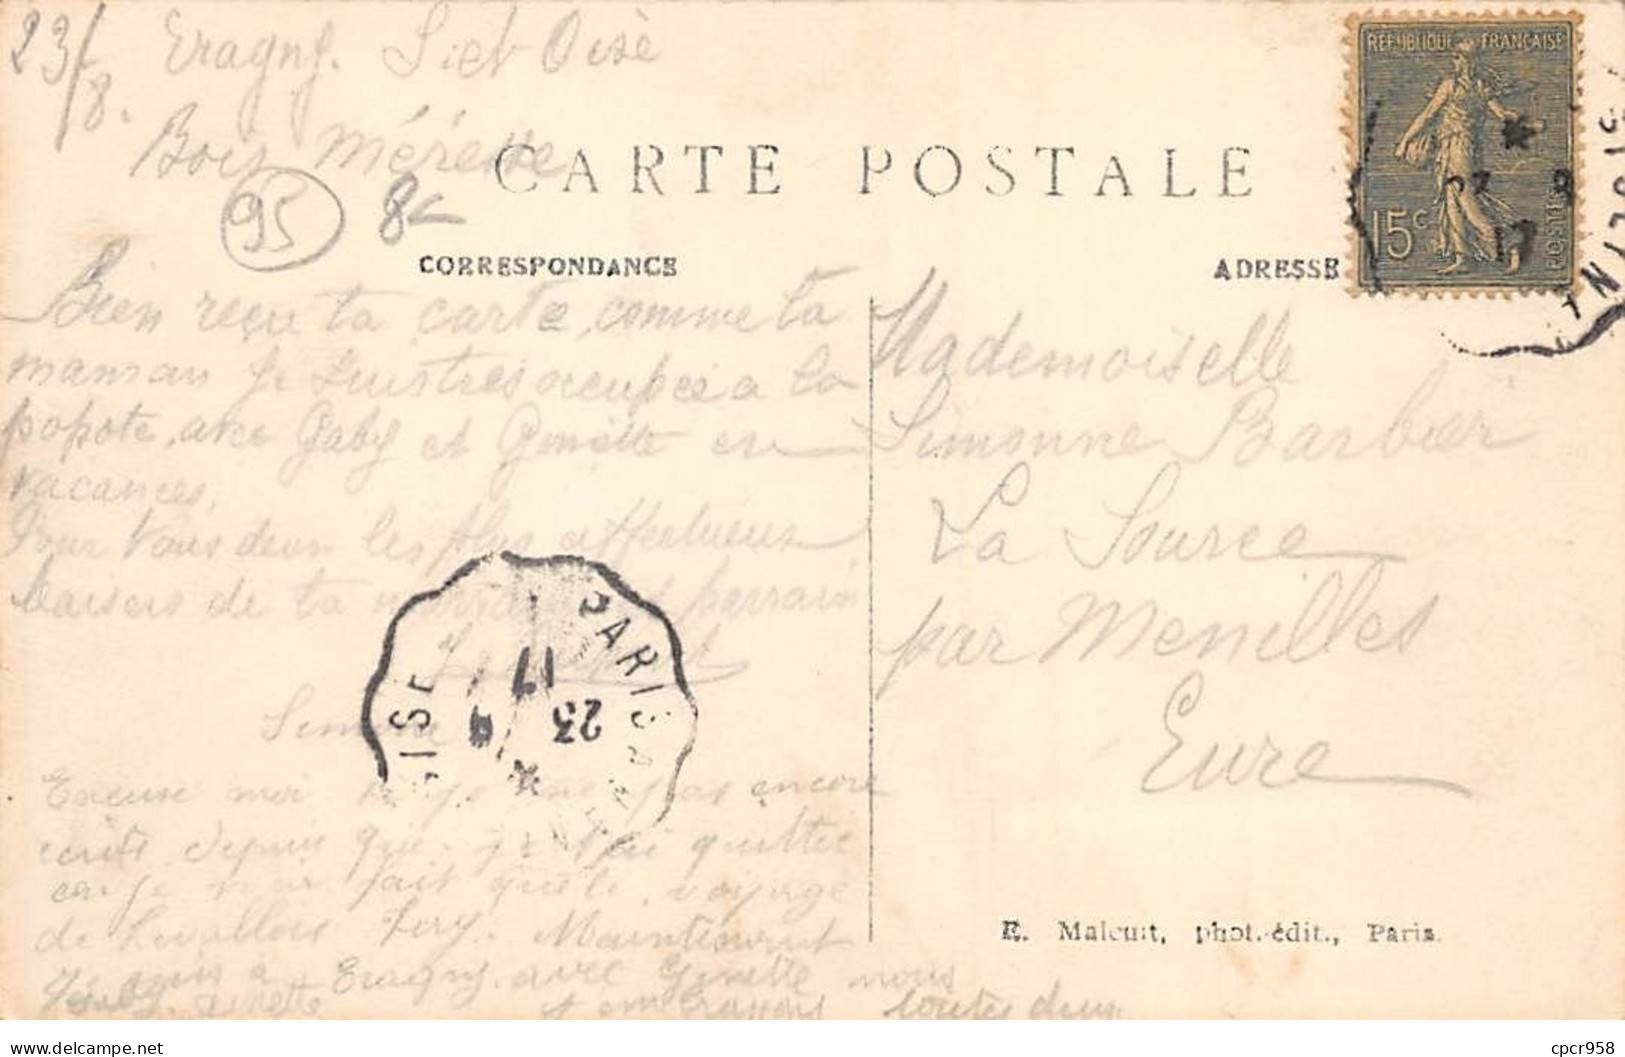 23/8. Eragny. S. et Oise
Bois Mérette
CARTE POSTALE
95 8
CORRESPONDANCE
Bien reçue ta carte, comme ta
maman je suis tres occupée a la
popote, avec Gaby et Ginette en
vacances.
Pour vous deux les plus affectueux
baisers de ta parrain
Simone
Excuse moi si je ne pas encore
écrite depuis que je t'ai quittée
car je n'ai fait que le voyage
de Levallois Maintenant
Je suis à Eragny avec Ginette nous
Gaby Ginette toutes deux
ADRESSE
REPUBLIQUE FRANÇAISE
15c
POSTES
23 8
17
Mademoiselle
Simonne Barbier
La Source
par Menilles
Eure
PARIS A
23 8
17
E. Malcuit, phot.-édit., Paris.
cpcr958